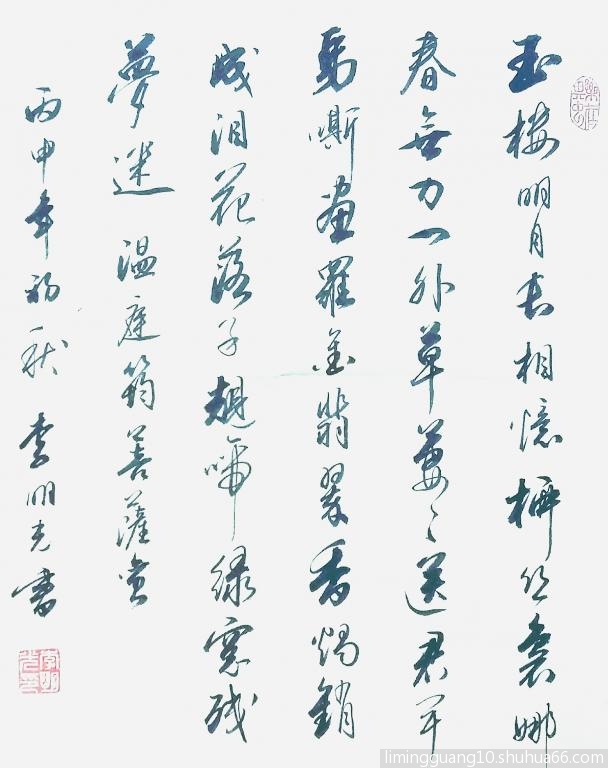 玉楼明月长相憶柳丝袅娜
春無力门外草萋々送君闻
馬嘶畫羅金翡翠香燭銷
成泪花落子规啼绿窗残
夢迷 温庭筠菩薩蛮
丙申年初秋 李明光書
limingguang10.shuhua66.com